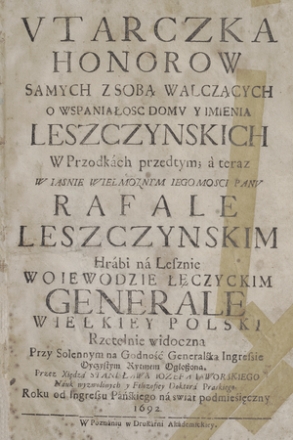 VTARCZKA
HONOROW
SAMYCH Z SOBĄ WALCZĄCYCH
O WSPANIAŁOSC DOMV Y IMIENIA
LESZCZYNSKICH
W Przodkách przedtym; á teraz
W IASNIE WIELMOZNYM IEGOMOSCI PANV
RAFALE
LESZCZYNSKIM
Hrábi ná Lesznie
WOIEWODZIE ŁECZYCKIM
GENERALE
WIELKIEY POLSKI
Rzetelnie widoczna
Przy Solennym na Godność Generalska Ingressie
Oyczystym Rymem Ogłoszona,
Przez Xiędzá STANISŁAWA IOZEFA BYWORSKIEGO
Náuk wyzwolonych y Filozofiey Doktorá
Roku od Ingresu Páńskiego ná świát podmiesięczny
1692
W Poznaniu w Drukárni Akádemickiey.